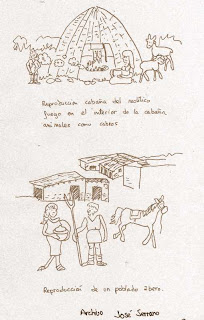 Reproduccion cabaña del neolitico
fuego en el interior de la cabaña,
animales como cabras
Reproducción de un poblado ibero.
Archivo José Serrano